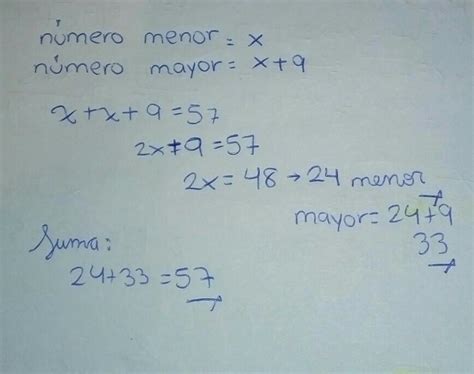 número menor = x
número mayor = x+9
x+x+9=57
2x+9=57
2x=48→24 menor
mayor=24+9
33
Suma:
24+33=57